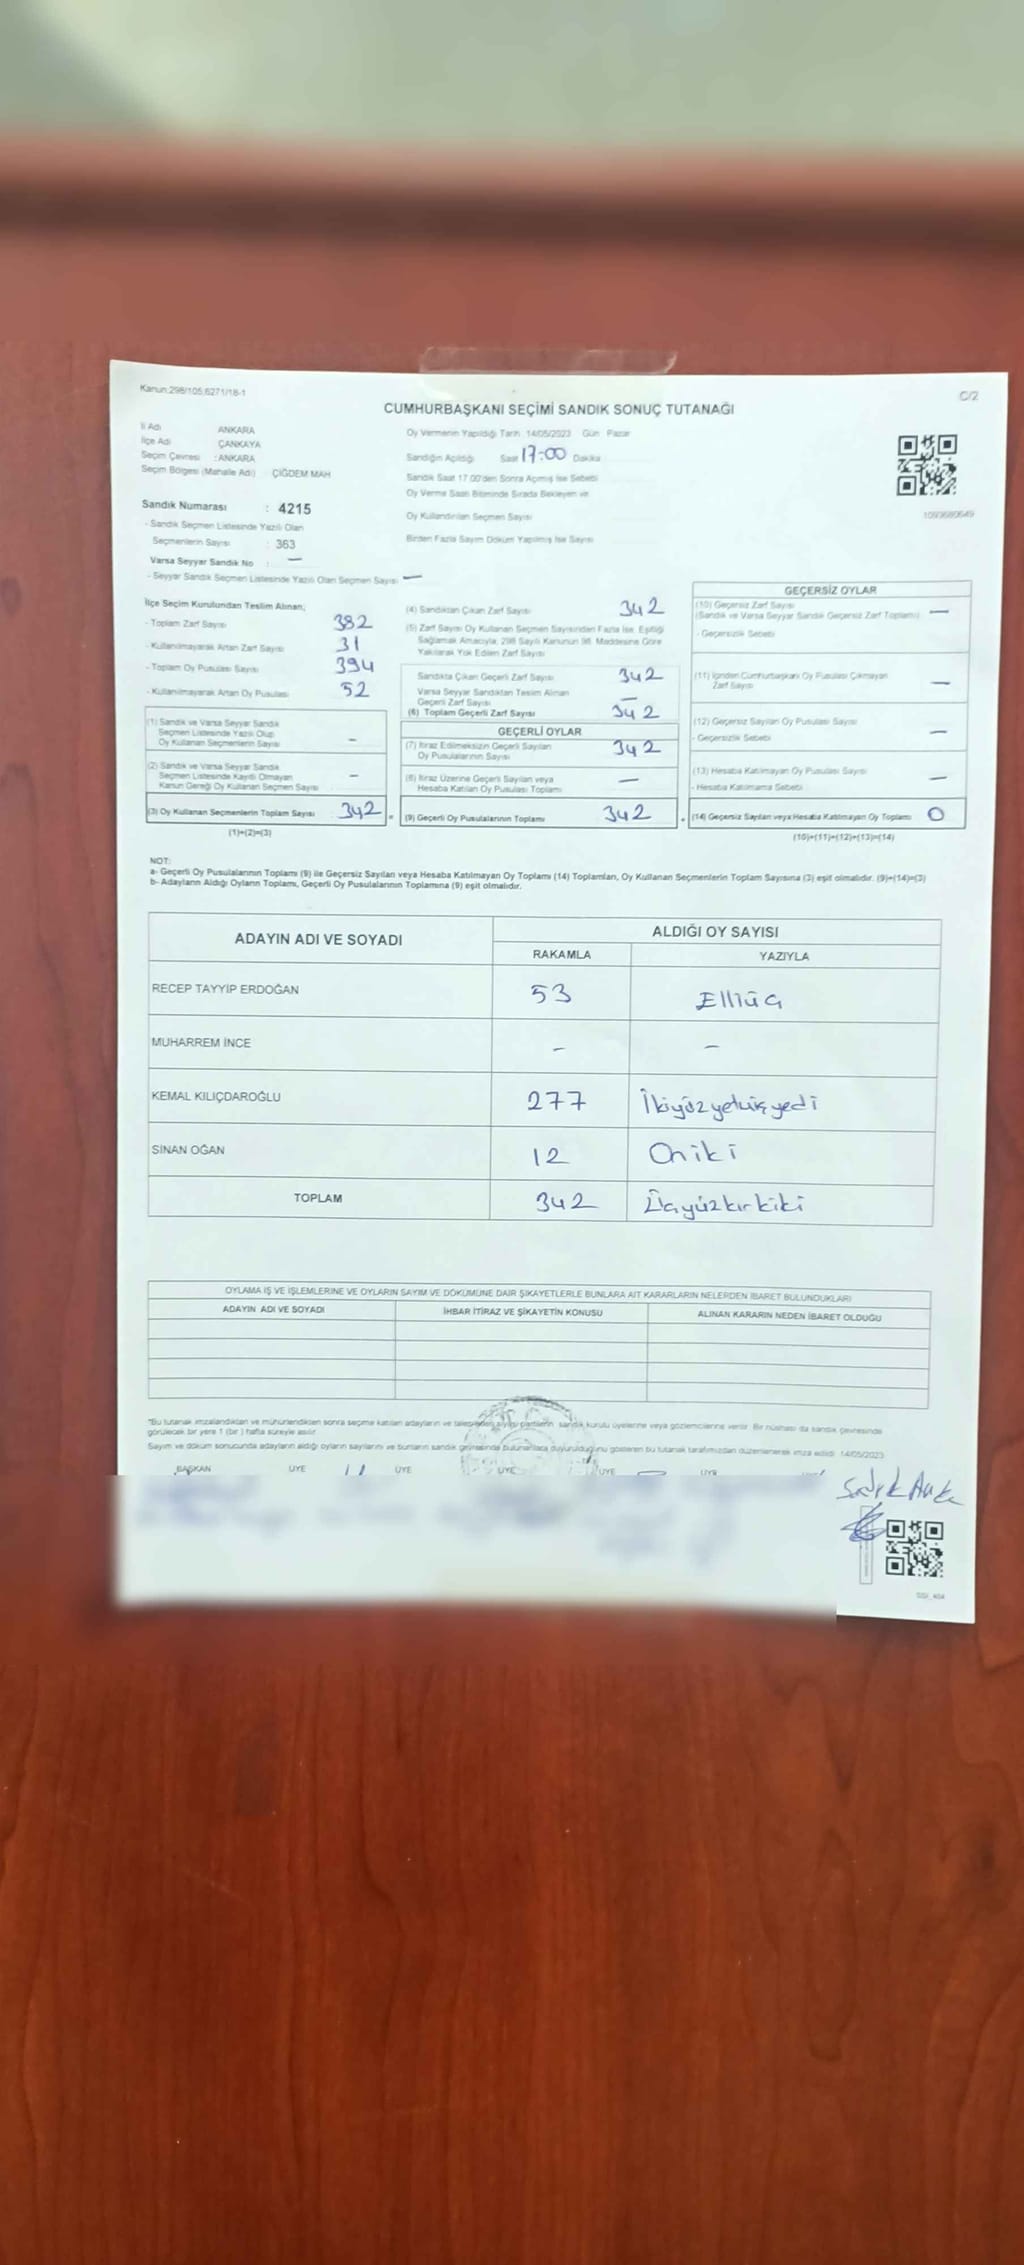 Kanun:298/105,6271/18-1
C/2
CUMHURBAŞKANI SEÇİMİ SANDIK SONUÇ TUTANAĞI
İl Adı ANKARA
İlçe Adı ÇANKAYA
Seçim Çevresi : ANKARA
Seçim Bölgesi (Mahalle Adı) ÇİĞDEM MAH
Sandık Numarası : 4215
- Sandık Seçmen Listesinde Yazılı Olan
Seçmenlerin Sayısı : 363
Varsa Seyyar Sandık No : —
- Seyyar Sandık Seçmen Listesinde Yazılı Olan Seçmen Sayısı —
Oy Vermenin Yapıldığı Tarih 14/05/2023 Gün Pazar
Sandığın Açıldığı Saat 17:00 Dakika
Sandık Saat 17.00'den Sonra Açılmış İse Sebebi
Oy Verme Saati Bitiminde Sırada Bekleyen ve
Oy Kullandırılan Seçmen Sayısı
Birden Fazla Sayım Döküm Yapılmış İse Sayısı
1093680649
İlçe Seçim Kurulundan Teslim Alınan;
- Toplam Zarf Sayısı 382
- Kullanılmayarak Artan Zarf Sayısı 31
- Toplam Oy Pusulası Sayısı 394
- Kullanılmayarak Artan Oy Pusulası 52
(1) Sandık ve Varsa Seyyar Sandık
Seçmen Listesinde Yazılı Olup
Oy Kullanan Seçmenlerin Sayısı –
(2) Sandık ve Varsa Seyyar Sandık
Seçmen Listesinde Kayıtlı Olmayan
Kanun Gereği Oy Kullanan Seçmen Sayısı –
(3) Oy Kullanan Seçmenlerin Toplam Sayısı 342 =
(1)+(2)=(3)
(4) Sandıktan Çıkan Zarf Sayısı 342
(5) Zarf Sayısı Oy Kullanan Seçmen Sayısından Fazla İse, Eşitliği
Sağlamak Amacıyla, 298 Sayılı Kanunun 98. Maddesine Göre
Yakılarak Yok Edilen Zarf Sayısı
Sandıkta Çıkan Geçerli Zarf Sayısı 342
Varsa Seyyar Sandıktan Teslim Alınan
Geçerli Zarf Sayısı —
(6) Toplam Geçerli Zarf Sayısı 342
GEÇERLİ OYLAR
(7) İtiraz Edilmeksizin Geçerli Sayılan
Oy Pusulalarının Sayısı 342
(8) İtiraz Üzerine Geçerli Sayılan veya
Hesaba Katılan Oy Pusulası Toplamı —
(9) Geçerli Oy Pusulalarının Toplamı 342 +
GEÇERSİZ OYLAR
(10) Geçersiz Zarf Sayısı
(Sandık ve Varsa Seyyar Sandık Geçersiz Zarf Toplamı) —
- Geçersizlik Sebebi
(11) İçinden Cumhurbaşkanı Oy Pusulası Çıkmayan
Zarf Sayısı —
(12) Geçersiz Sayılan Oy Pusulası Sayısı —
- Geçersizlik Sebebi
(13) Hesaba Katılmayan Oy Pusulası Sayısı —
- Hesaba Katılmama Sebebi
(14) Geçersiz Sayılan veya Hesaba Katılmayan Oy Toplamı 0
(10)+(11)+(12)+(13)=(14)
NOT:
a- Geçerli Oy Pusulalarının Toplamı (9) ile Geçersiz Sayılan veya Hesaba Katılmayan Oy Toplamı (14) Toplamları, Oy Kullanan Seçmenlerin Toplam Sayısına (3) eşit olmalıdır. (9)+(14)=(3)
b- Adayların Aldığı Oyların Toplamı, Geçerli Oy Pusulalarının Toplamına (9) eşit olmalıdır.
ADAYIN ADI VE SOYADI ALDIĞI OY SAYISI
RAKAMLA YAZIYLA
RECEP TAYYİP ERDOĞAN 53 Elliüç
MUHARREM İNCE – –
KEMAL KILIÇDAROĞLU 277 İkiyüzyetmişyedi
SİNAN OĞAN 12 Oniki
TOPLAM 342 Üçyüzkırkiki
OYLAMA İŞ VE İŞLEMLERİNE VE OYLARIN SAYIM VE DÖKÜMÜNE DAİR ŞİKAYETLERLE BUNLARA AİT KARARLARIN NELERDEN İBARET BULUNDUKLARI
ADAYIN ADI VE SOYADI İHBAR İTİRAZ VE ŞİKAYETİN KONUSU ALINAN KARARIN NEDEN İBARET OLDUĞU
*Bu tutanak imzalandıktan ve mühürlendikten sonra seçime katılan adayların ve talep eden siyasi partilerin sandık kurulu üyelerine veya gözlemcilerine verilir. Bir nüshası da sandık çevresinde
görülecek bir yere 1 (bir) hafta süreyle asılır.
Sayım ve döküm sonucunda adayların aldığı oyların sayılarını ve bunların sandık çevresinde bulunanlara duyurulduğunu gösteren bu tutanak tarafımızdan düzenlenerek imza edildi. 14/05/2023
BAŞKAN ÜYE ÜYE ÜYE ÜYE ÜYE